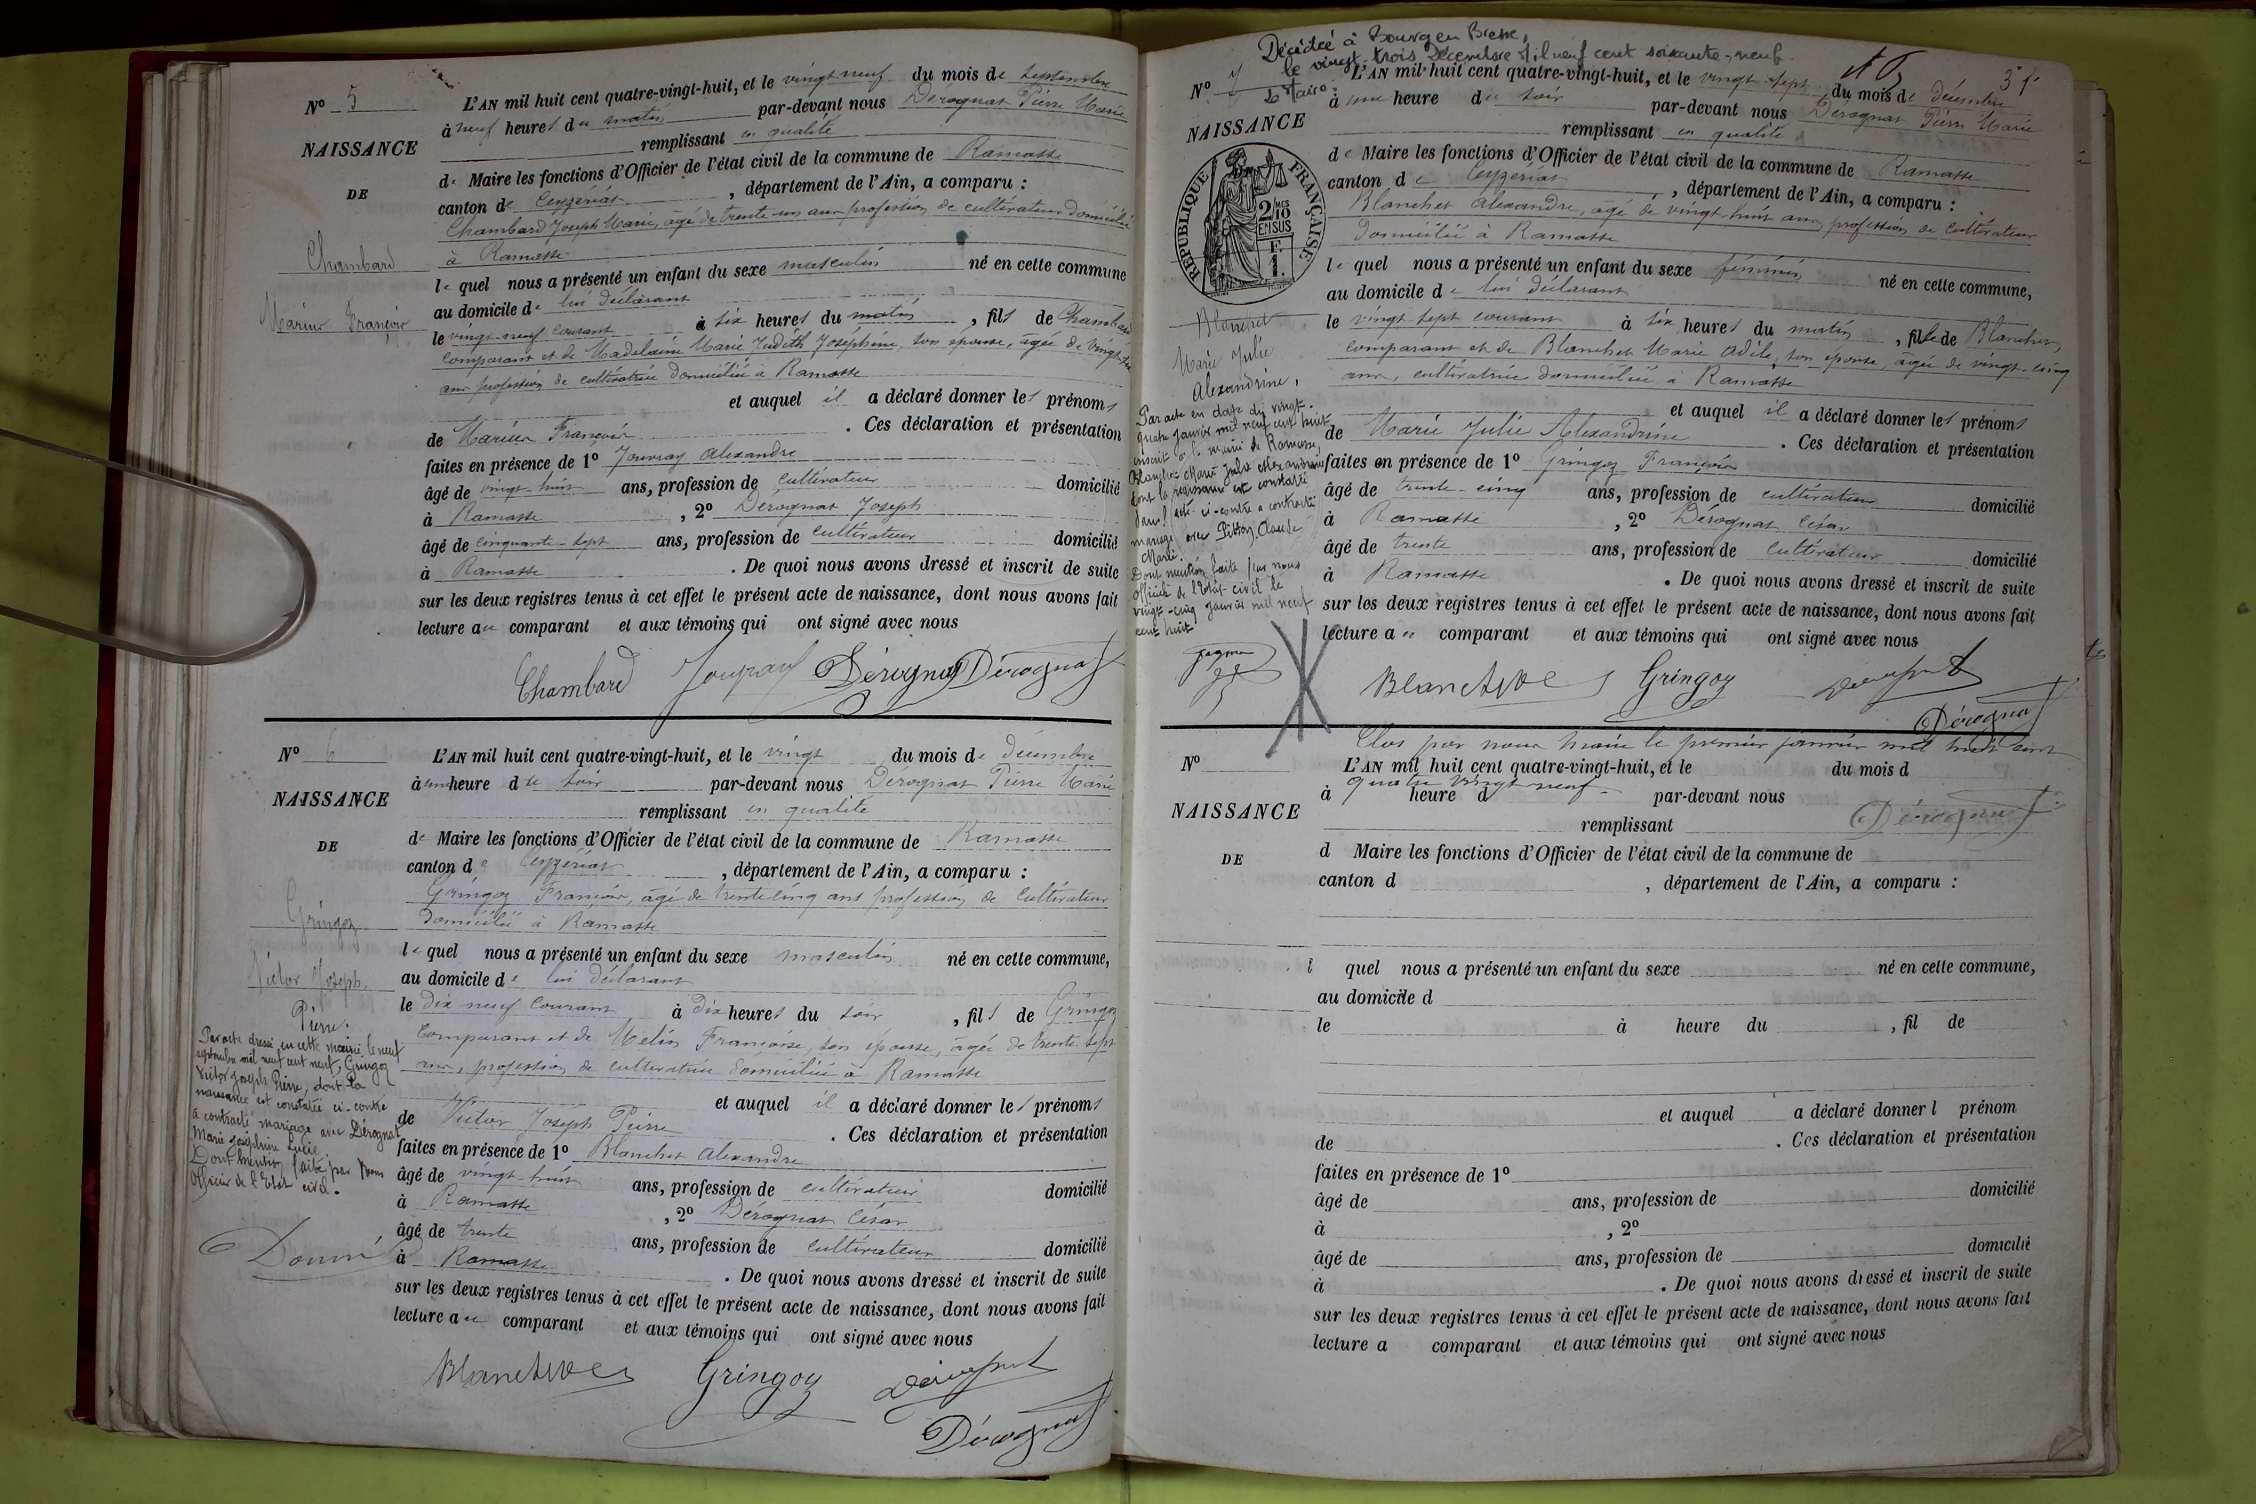 Nº 5
NAISSANCE
DE
Chambard
Marius François
L'AN mil huit cent quatre-vingt-huit, et le vingt neuf du mois de septembre
à neuf heures du matin par-devant nous Dérognat Pierre Marie
remplissant en qualité
de Maire les fonctions d'Officier de l'état civil de la commune de Ramasse
canton de Ceyzériat, département de l'Ain, a comparu :
Chambard Joseph Marie, âgé de trente-un ans profession de cultivateur domicilié
à Ramasse
le quel nous a présenté un enfant du sexe masculin né en cette commune
au domicile de lui déclarant
le vingt-neuf courant à six heures du matin, fils de Chambard
comparant et de Madelaine Marie Judith Joséphine, son épouse, âgée de vingt-
ans profession de cultivatrice domiciliée à Ramasse
et auquel il a déclaré donner les prénoms
de Marius François. Ces déclaration et présentation
faites en présence de 1º Jouvray Alexandre
âgé de vingt-huit ans, profession de cultivateur domicilié
à Ramasse, 2º Dérognat Joseph
âgé de cinquante-sept ans, profession de cultivateur domicilié
à Ramasse. De quoi nous avons dressé et inscrit de suite
sur les deux registres tenus à cet effet le présent acte de naissance, dont nous avons fait
lecture au comparant et aux témoins qui ont signé avec nous
Chambard Jouvray Dérognat Dérognat
Nº 6
NAISSANCE
DE
Gringoz
Victor Joseph
Pierre.
Par acte dressé en cette mairie le neuf
septembre mil neuf cent neuf, Gringoz
Victor Joseph Pierre, dont la
naissance est constatée ci-contre
a contracté mariage avec Dérognat
Marie Joséphine Lucie.
Dont mention faite par Nous
Officier de l'Etat civil.
L'AN mil huit cent quatre-vingt-huit, et le vingt du mois de décembre
à une heure du soir par-devant nous Dérognat Pierre Marie
remplissant en qualité
de Maire les fonctions d'Officier de l'état civil de la commune de Ramasse
canton de Ceyzériat, département de l'Ain, a comparu :
Gringoz François, âgé de trente cinq ans profession de cultivateur
domicilié à Ramasse
le quel nous a présenté un enfant du sexe masculin né en cette commune,
au domicile de lui déclarant
le dix neuf courant à dix heures du soir, fils de Gringoz
comparant et de Melin Françoise, son épouse, âgée de trente-sept
ans, profession de cultivatrice domiciliée à Ramasse
et auquel il a déclaré donner les prénoms
de Victor Joseph Pierre. Ces déclaration et présentation
faites en présence de 1º Blanchet Alexandre
âgé de vingt-huit ans, profession de cultivateur domicilié
à Ramasse, 2º Dérognat César
âgé de trente ans, profession de cultivateur domicilié
à Ramasse. De quoi nous avons dressé et inscrit de suite
sur les deux registres tenus à cet effet le présent acte de naissance, dont nous avons fait
lecture au comparant et aux témoins qui ont signé avec nous
Gringoz Dérognat
Dérognat
Décédée à Bourg en Bresse,
le vingt-trois Décembre Mil neuf cent soixante-neuf.
Le Maire :
Nº 7
NAISSANCE
RÉPUBLIQUE FRANÇAISE
2/10
EN SUS
F.
1.
Blanchet
Marie Julie
Alexandrine,
Par acte en date du vingt-
quatre janvier mil neuf cent huit
inscrit à la mairie de Ramasse,
Blanchet Marie Julie Alexandrine
dont la naissance est constatée
dans l'acte ci-contre a contracté
mariage avec Claude
Marie.
Dont mention faite par nous
officier de l'Etat-civil le
vingt-cinq janvier mil neuf
cent huit
L'AN mil huit cent quatre-vingt-huit, et le vingt-sept du mois de décembre
à une heure du soir par-devant nous Dérognat Pierre Marie
remplissant en qualité
de Maire les fonctions d'Officier de l'état civil de la commune de Ramasse
canton de Ceyzériat, département de l'Ain, a comparu :
Blanchet Alexandre, âgé de vingt-huit ans profession de cultivateur
domicilié à Ramasse
le quel nous a présenté un enfant du sexe féminin né en cette commune,
au domicile de lui déclarant
le vingt-sept courant à six heures du matin, fille de Blanchet,
comparant et de Blanchet Marie Adèle, son épouse, âgée de vingt-cinq
ans, cultivatrice domiciliée à Ramasse
et auquel il a déclaré donner les prénoms
de Marie Julie Alexandrine. Ces déclaration et présentation
faites en présence de 1º Gringoz François
âgé de trente-cinq ans, profession de cultivateur domicilié
à Ramasse, 2º Dérognat César
âgé de trente ans, profession de cultivateur domicilié
à Ramasse. De quoi nous avons dressé et inscrit de suite
sur les deux registres tenus à cet effet le présent acte de naissance, dont nous avons fait
lecture au comparant et aux témoins qui ont signé avec nous
Gringoz
Dérognat
Clos par nous Maire le premier janvier mil huit cent
quatre vingt neuf.
Dérognat
Nº
NAISSANCE
DE
L'AN mil huit cent quatre-vingt-huit, et le du mois d
à heure d par-devant nous
remplissant
d Maire les fonctions d'Officier de l'état civil de la commune de
canton d , département de l'Ain, a comparu :
l quel nous a présenté un enfant du sexe né en cette commune,
au domicile d
le à heure du , fil de
et auquel a déclaré donner l prénom
de . Ces déclaration et présentation
faites en présence de 1º
âgé de ans, profession de domicilié
à , 2º
âgé de ans, profession de domicilié
à . De quoi nous avons dressé et inscrit de suite
sur les deux registres tenus à cet effet le présent acte de naissance, dont nous avons fait
lecture a comparant et aux témoins qui ont signé avec nous